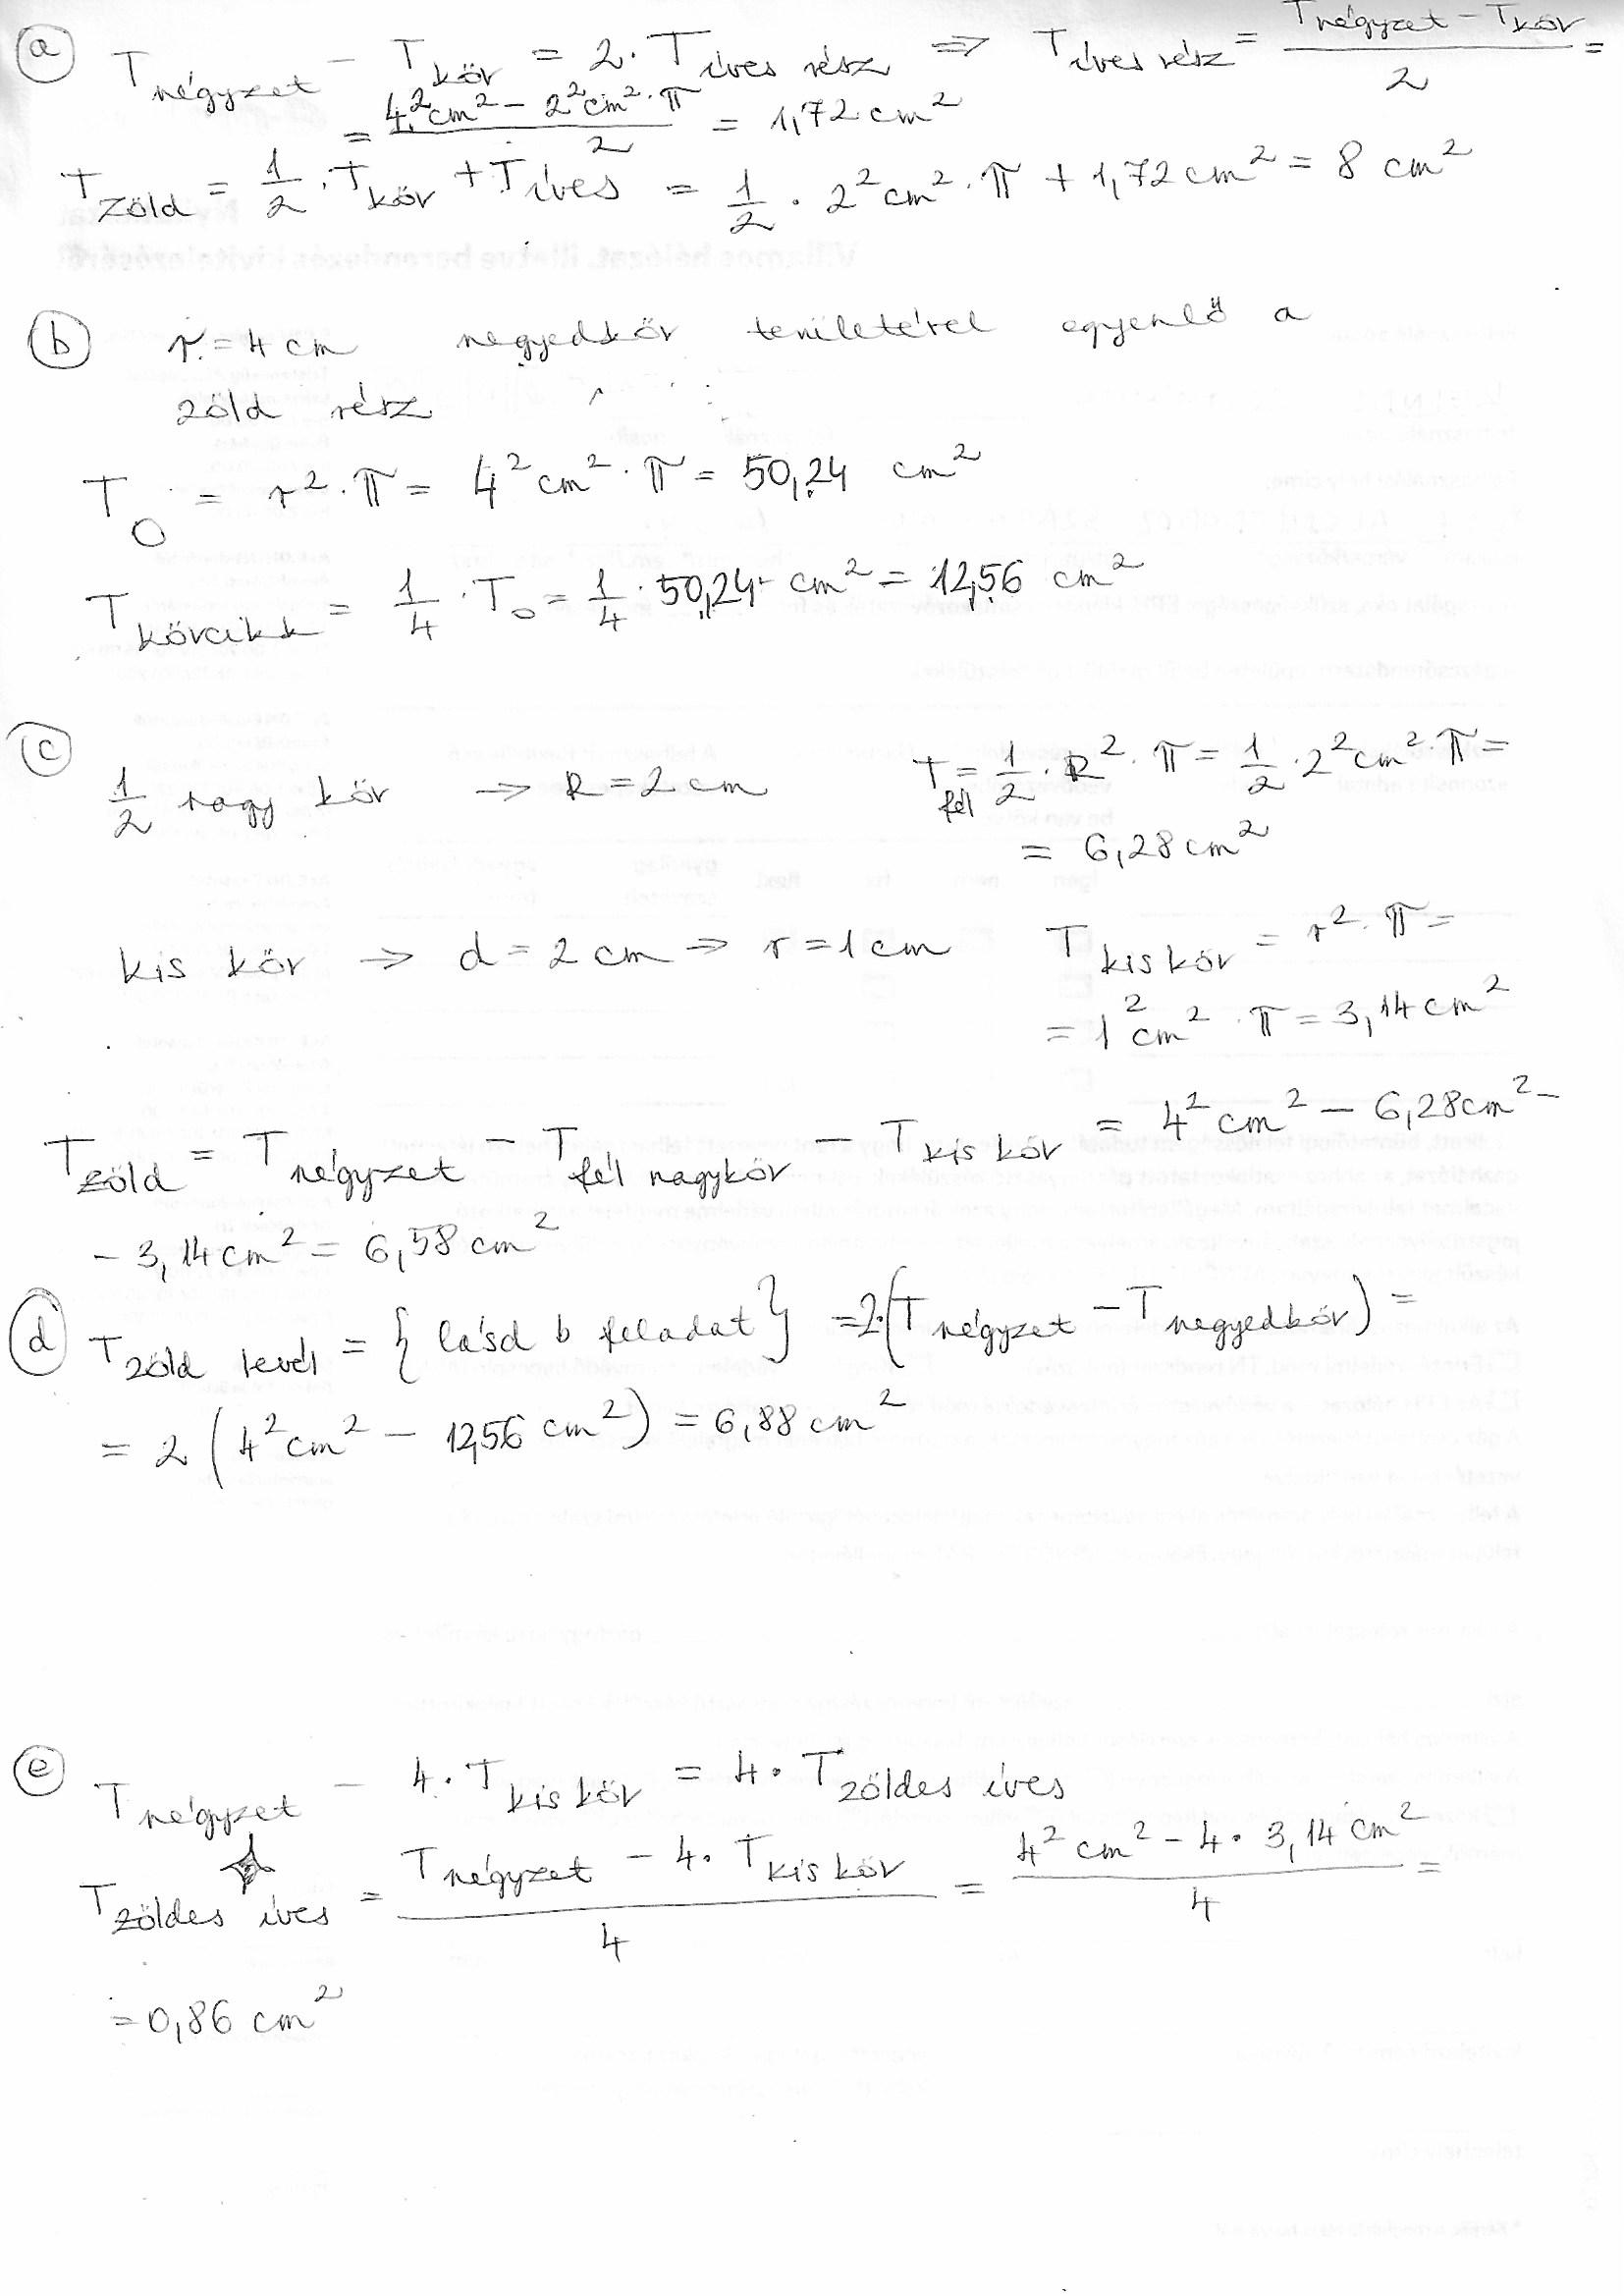 a T négyzet - T kör = 2 · T íves rész ⇒ T íves rész = (T négyzet - T kör) / 2 =
= (4² cm² - 2² cm² · π) / 2 = 1,72 cm²
T zöld = 1/2 · T kör + T íves = 1/2 · 2² cm² · π + 1,72 cm² = 8 cm²
b r = 4 cm negyedkör területével egyenlő a
zöld rész
T○ = r² · π = 4² cm² · π = 50,24 cm²
T körcikk = 1/4 · T○ = 1/4 · 50,24 cm² = 12,56 cm²
c 1/2 nagy kör → R = 2 cm T fél = 1/2 · R² · π = 1/2 · 2² cm² · π =
= 6,28 cm²
kis kör → d = 2 cm → r = 1 cm T kis kör = r² · π =
= 1² cm² · π = 3,14 cm²
T zöld = T négyzet - T fél nagykör - T kis kör = 4² cm² - 6,28 cm² -
- 3,14 cm² = 6,58 cm²
d T zöld levél = { lásd b feladat } = 2·(T négyzet - T negyedkör) =
= 2 (4² cm² - 12,56 cm²) = 6,88 cm²
e T négyzet - 4 · T kis kör = 4 · T zöldes íves
T zöldes íves = (T négyzet - 4 · T kis kör) / 4 = (4² cm² - 4 · 3,14 cm²) / 4 =
= 0,86 cm²